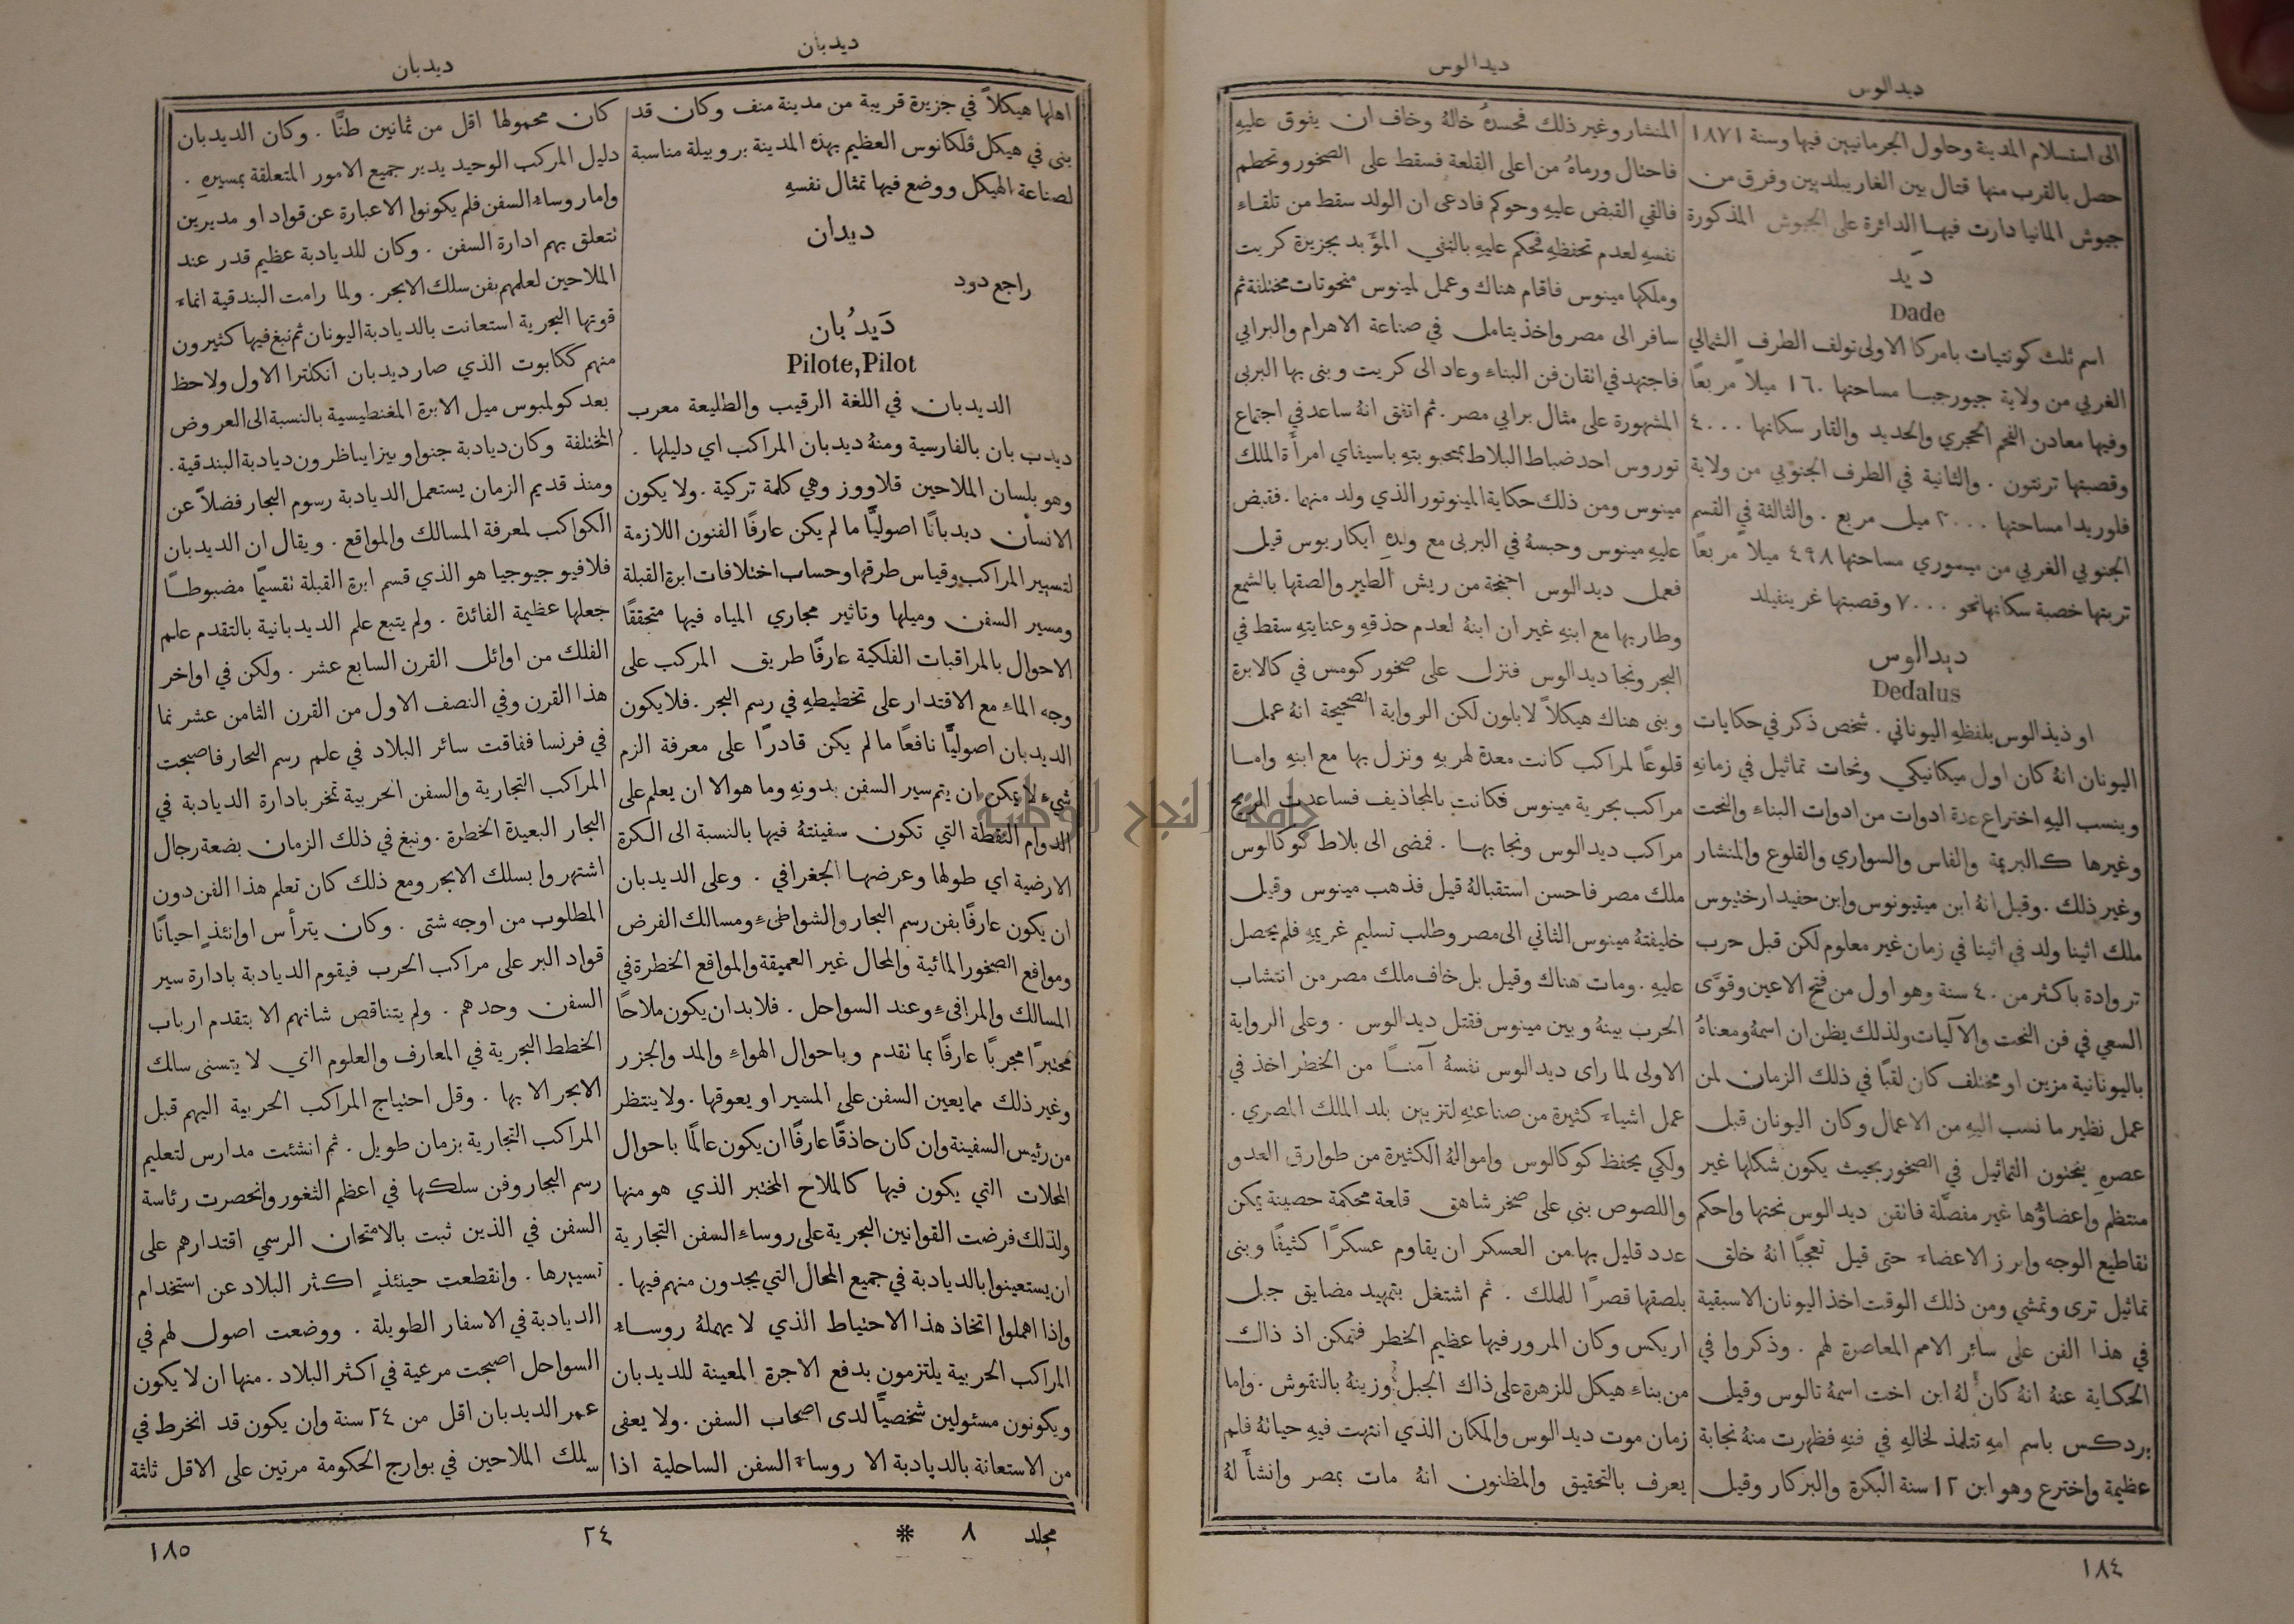 ديدالوس
ديدالوس
الى استسلام المدينة وحلول الجرمانيين فيها وسنة ١٨٧١
حصل بالقرب منها قتال بين الغاريبلديين وفرق من
جيوش المانيا دارت فيها الدائرة على الجيوش المذكورة
دَيد
Dade
اسم ثلث كونتيات بامركا الاولى تولف الطرف الشمالي
الغربي من ولاية جيورجيا مساحتها ١٦٠ ميلاً مربعًا
وفيها معادن الفحم الحجري والحديد والقار سكانها ٤٠٠٠
وقصبتها ترنتون . والثانية في الطرف الجنوبي من ولاية
فلوريدا مساحتها ٢٠٠٠ ميل مربع . والثالثة في القسم
الجنوبي الغربي من ميسوري مساحتها ٤٩٨ ميلاً مربعًا
تربتها خصبة سكانها نحو ٧٠٠٠ وقصبتها غرينفيلد
ديدالوس
Dedalus
او ذيذالوس بلفظهِ اليوناني . شخص ذكر في حكايات
اليونان انهُ كان اول ميكانيكي ونحات تماثيل في زمانهِ
وينسب اليهِ اختراع عدة ادوات من ادوات البناء والنحت
وغيرها كالبريمة والفاس والسواري والقلوع والمنشار
وغير ذلك . وقيل انهُ ابن ميتيونوس وابن حفيد ارختيوس
ملك اثينا ولد في اثينا في زمان غير معلوم لكن قبل حرب
تروادة باكثر من ٤٠ سنة وهو اول من فتح الاعين وقوَّى
السعي في فن النحت والآليات ولذلك يظن ان اسمهُ ومعناهُ
باليونانية مزين او مختلف كان لقبًا في ذلك الزمان لمن
عمل نظير ما نسب اليهِ من الاعمال وكان اليونان قبل
عصرهِ ينحتون التماثيل في الصخور بحيث يكون شكلها غير
منتظم واعضاؤها غير مفصَّلة فاتقن ديدالوس نحتها واحكم
تقاطيع الوجه وابرز الاعضاء حتى قيل تعجبًا انهُ خلق
تماثيل ترى وتمشي ومن ذلك الوقت اخذ اليونان الاسبقية
في هذا الفن على سائر الامم المعاصرة لهم . وذكروا في
الحكاية عنهُ انهُ كان لهُ ابن اخت اسمهُ تالوس وقيل
بردكس باسم امهِ تتلمذ لخالهِ في فنهِ فظهرت منهُ نجابة
عظيمة واخترع وهو ابن ١٢ سنة البكرة والبركار وقيل
المنشار وغير ذلك فحسدهُ خالهُ وخاف ان يفوق عليهِ
فاحتال ورماهُ من اعلى القلعة فسقط على الصخور وتحطم
فالقي القبض عليهِ وحوكم فادعى ان الولد سقط من تلقاء
نفسهِ لعدم تحفظهِ فحكم عليهِ بالنفي المؤبد بجزيرة كريت
وملكها مينوس فاقام هناك وعمل لمينوس منحوتات مختلفة ثم
سافر الى مصر واخذ يتامل في صناعة الاهرام والبرابي
فاجتهد في اتقان فن البناء وعاد الى كريت وبنى بها البربى
المشهورة على مثال برابي مصر . ثم اتفق انهُ ساعد في اجتماع
توروس احد ضباط البلاط بمحبوبتهِ باسيفاي امرأة الملك
مينوس ومن ذلك حكاية المينوتور الذي ولد منهما . فقبض
عليهِ مينوس وحبسهُ في البربى مع ولدهِ ايكاريوس قيل
فعمل ديدالوس اجنحة من ريش الطير والصقها بالشمع
وطار بها مع ابنهِ غير ان ابنهُ لعدم حذقهِ وعنايتهِ سقط في
البحر ونجا ديدالوس فنزل على صخور كومس في كالابرة
وبنى هناك هيكلاً لابلون لكن الرواية الصحيحة انهُ عمل
قلوعًا لمراكب كانت معدة لهربهِ ونزل بها مع ابنهِ واما
مراكب بحرية مينوس فكانت بالمجاذيف فساعدت الريح
مراكب ديدالوس ونجا بها . فمضى الى بلاط كوكالوس
ملك مصر فاحسن استقبالهُ قيل فذهب مينوس وقيل
خليفتهُ مينوس الثاني الى مصر وطلب تسليم غريمهِ فلم يحصل
عليهِ . ومات هناك وقيل بل خاف ملك مصر من انتشاب
الحرب بينهُ وبين مينوس فقتل ديدالوس . وعلى الرواية
الاولى لما راى ديدالوس نفسهُ آمنًا من الخطر اخذ في
عمل اشياء كثيرة من صناعتهِ لتزيين بلد الملك المصري .
ولكي يحفظ كوكالوس واموالهُ الكثيرة من طوارق العدو
واللصوص بنى على صخر شاهق قلعة محكمة حصينة يمكن
عدد قليل بها من العسكر ان يقاوم عسكرًا كثيفًا وبنى
بلصقها قصرًا للملك . ثم اشتغل بتمهيد مضايق جبل
اريكس وكان المرور فيها عظيم الخطر فتمكن اذ ذاك
من بناء هيكل للزهرة على ذاك الجبل وزينهُ بالنقوش . واما
زمان موت ديدالوس والمكان الذي انتهت فيهِ حياتهُ فلم
يعرف بالتحقيق والمظنون انهُ مات بمصر وانشأ لهُ
١٨٤
ديدبان
ديدبان
اهلها هيكلاً في جزيرة قريبة من مدينة منف وكان قد
بنى في هيكل ڤلكانوس العظيم بهذه المدينة بروبيلة مناسبة
لصناعة الهيكل ووضع فيها تمثال نفسهِ
ديدان
راجع دود
دَيدُبان
Pilote, Pilot
الديدبان في اللغة الرقيب والطليعة معرب
ديدب بان بالفارسية ومنهُ ديدبان المراكب اي دليلها .
وهو بلسان الملاحين قلاووز وهي كلمة تركية . ولا يكون
الانسان ديدبانًا اصوليًّا ما لم يكن عارفًا الفنون اللازمة
لتسيير المراكب وقياس طرقها وحساب اختلافات ابرة القبلة
ومسير السفن وميلها وتاثير مجاري المياه فيها متحققًا
الاحوال بالمراقبات الفلكية عارفًا طريق المركب على
وجه الماء مع الاقتدار على تخطيطهِ في رسم البحر . فلا يكون
الديدبان اصوليًّا نافعًا ما لم يكن قادرًا على معرفة الزم
شيء لا يمكن ان يتم سير السفن بدونهِ وما هو الا ان يعلم على
الدوام النقطة التي تكون سفينتهُ فيها بالنسبة الى الكرة
الارضية اي طولها وعرضها الجغرافي . وعلى الديدبان
ان يكون عارفًا بفن رسم البحار والشواطئ ومسالك الفرض
ومواقع الصخور المائية والمحال غير العميقة والمواقع الخطرة في
المسالك والمرافئ وعند السواحل . فلا بد ان يكون ملاحًا
مختبرًا مجربًا عارفًا بما تقدم وباحوال الهواء والمد والجزر
وغير ذلك مما يعين السفن على المسير او يعوقها . ولا ينتظر
من رئيس السفينة وان كان حاذقًا عارفًا ان يكون عالمًا باحوال
المحلات التي يكون فيها كالملاح المختبر الذي هو منها
ولذلك فرضت القوانين البحرية على روساء السفن التجارية
ان يستعينوا بالديادبة في جميع المحال التي يجدون منهم فيها .
واذا اهملوا اتخاذ هذا الاحتياط الذي لا يهملهُ روساء
المراكب الحربية يلتزمون بدفع الاجرة المعينة للديدبان
ويكونون مسئولين شخصيًّا لدى اصحاب السفن . ولا يعفى
من الاستعانة بالديادبة الا روساء السفن الساحلية اذا
كان محمولها اقل من ثمانين طنًّا . وكان الديدبان
دليل المركب الوحيد يدبر جميع الامور المتعلقة بمسيرهِ .
واما روساء السفن فلم يكونوا الا عبارة عن قواد او مديرين
تتعلق بهم ادارة السفن . وكان للديادبة عظيم قدر عند
الملاحين لعلمهم بفن سلك الابحر . ولما رامت البندقية انماء
قوتها البحرية استعانت بالديادبة اليونان ثم نبغ فيها كثيرون
منهم ككابوت الذي صار ديدبان انكلترا الاول ولاحظ
بعد كولمبوس ميل الابرة المغنطيسية بالنسبة الى العروض
المختلفة وكان ديادبة جنوا وبيزا يناظرون ديادبة البندقية .
ومنذ قديم الزمان يستعمل الديادبة رسوم البحار فضلاً عن
الكواكب لمعرفة المسالك والمواقع . ويقال ان الديدبان
فلافيو جيوجيا هو الذي قسم ابرة القبلة تقسيمًا مضبوطًا
جعلها عظيمة الفائدة . ولم يتبع علم الديدبانية بالتقدم علم
الفلك من اوائل القرن السابع عشر . ولكن في اواخر
هذا القرن وفي النصف الاول من القرن الثامن عشر نما
في فرنسا ففاقت سائر البلاد في علم رسم البحار فاصبحت
المراكب التجارية والسفن الحربية تمخر بادارة الديادبة في
البحار البعيدة الخطرة . ونبغ في ذلك الزمان بضعة رجال
اشتهروا بسلك الابحر ومع ذلك كان تعلم هذا الفن دون
المطلوب من اوجه شتى . وكان يترأس اوانئذٍ احيانًا
قواد البر على مراكب الحرب فيقوم الديادبة بادارة سير
السفن وحدهم . ولم يتناقص شانهم الا بتقدم ارباب
الخطط البحرية في المعارف والعلوم التي لا يتسنى سلك
الابحر الا بها . وقل احتياج المراكب الحربية اليهم قبل
المراكب التجارية بزمان طويل . ثم انشئت مدارس لتعليم
رسم البحار وفن سلكها في اعظم الثغور وانحصرت رئاسة
السفن في الذين ثبت بالامتحان الرسمي اقتدارهم على
تسييرها . وانقطعت حينئذٍ اكثر البلاد عن استخدام
الديادبة في الاسفار الطويلة . ووضعت اصول لهم في
السواحل اصبحت مرعية في اكثر البلاد . منها ان لا يكون
عمر الديدبان اقل من ٢٤ سنة وان يكون قد انخرط في
سلك الملاحين في بوارج الحكومة مرتين على الاقل ثالثة
مجلد ٨ * ٢٤
١٨٥
جامعة النجاح الوطنية